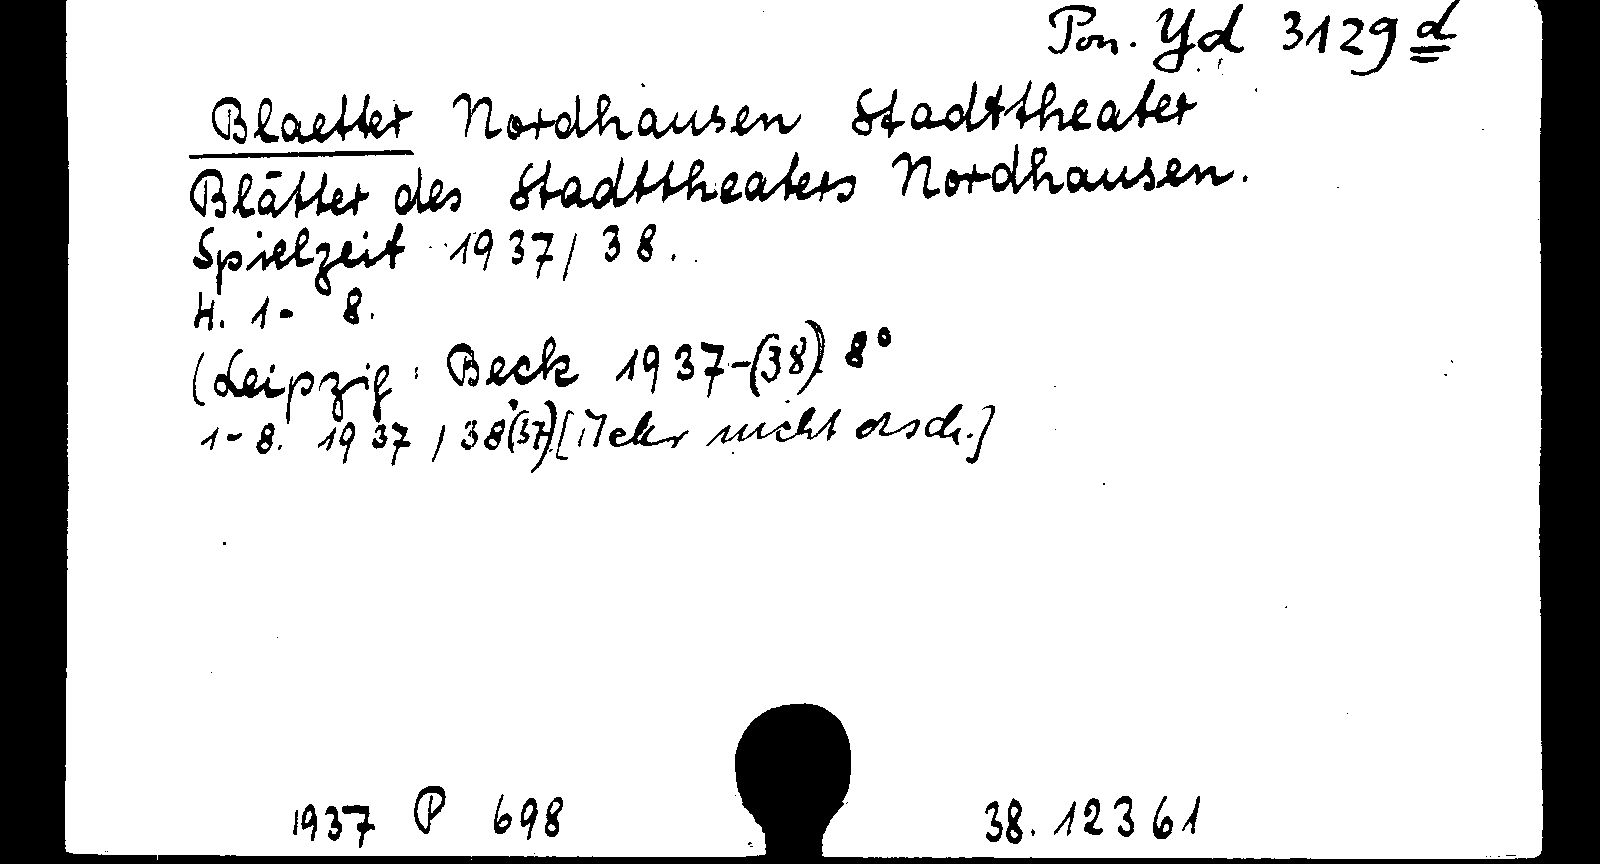 Pon. Yd 3129 d
Blaetter Nordhausen Stadttheater
Blätter des Stadttheaters Nordhausen.
Spielzeit 1937/38.
H. 1- 8.
(Leipzig: Beck 1937-(38) 8°
1-8. 1937/38(37) [Mehr nicht ersch.]
1937 P 698
38. 12361